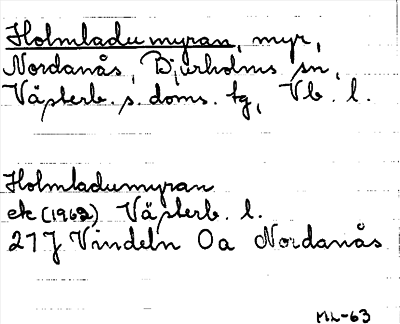 Holmladumyran, myr,
Nordanås, Bjurholms sn,
Västerb. s. doms. tg, Vb. l.
Holmladumyran
ek (1962) Västerb. l.
21J Vindeln 0a Nordanås
ML-63